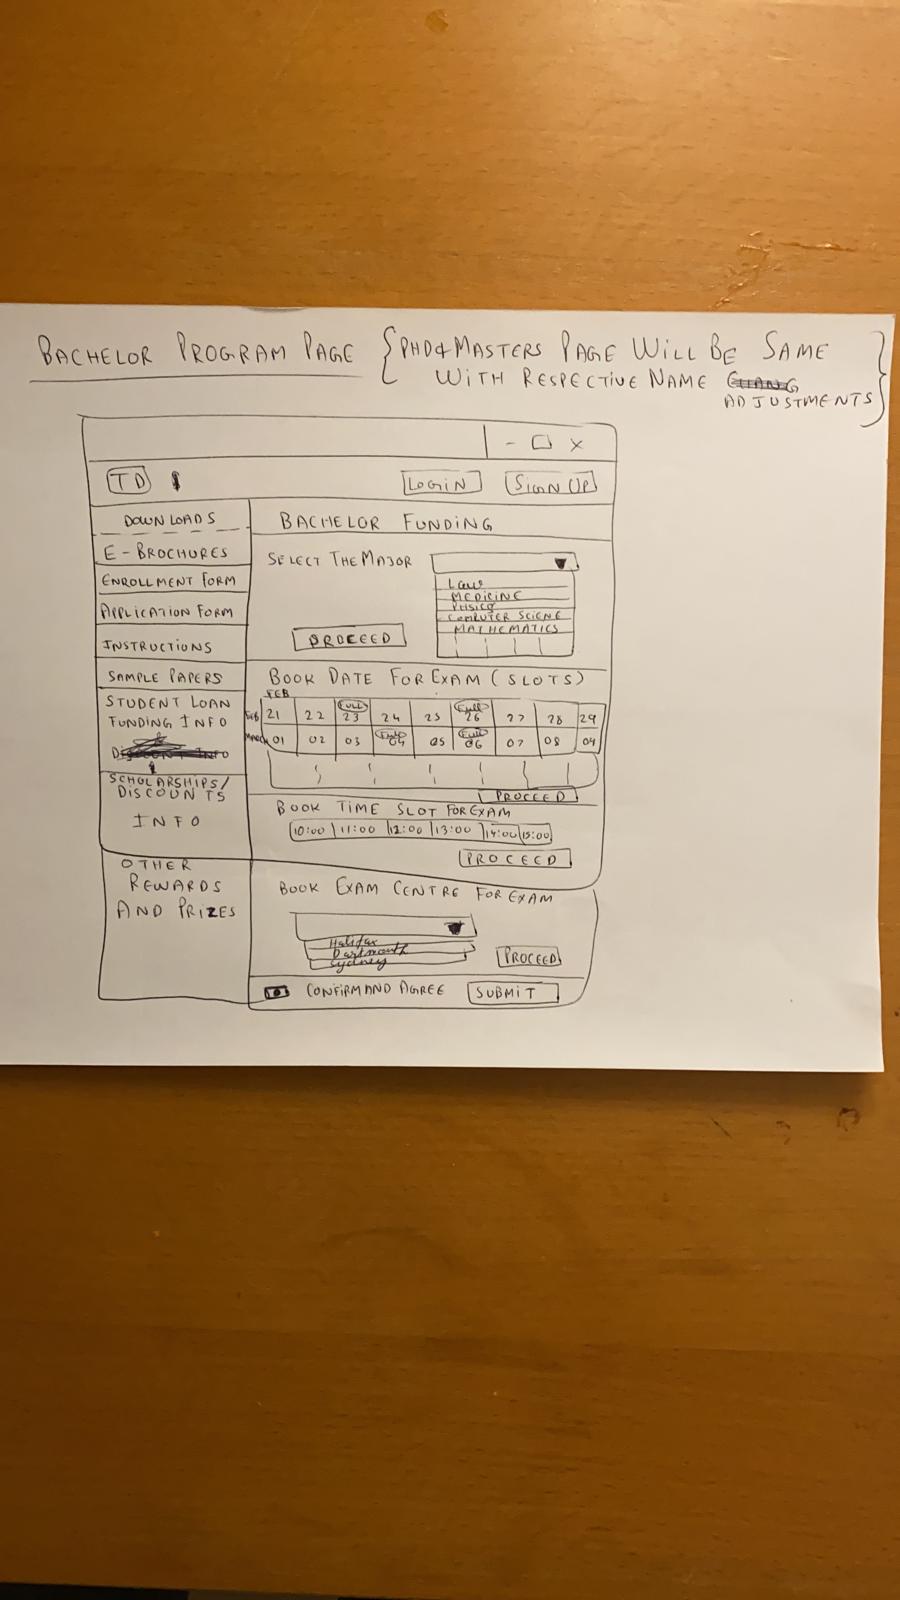 BACHELOR PROGRAM PAGE {PHD & MASTERS PAGE WILL BE SAME
WITH RESPECTIVE NAME
ADJUSTMENTS}
- □ X
TD
LOGIN
SIGN UP
DOWNLOADS
E-BROCHURES
ENROLLMENT FORM
APPLICATION FORM
INSTRUCTIONS
SAMPLE PAPERS
STUDENT LOAN
FUNDING INFO
SCHOLARSHIPS/
DISCOUNTS
INFO
OTHER
REWARDS
AND PRIZES
BACHELOR FUNDING
SELECT THE MAJOR
Law
MEDICINE
PHSICS
COMPUTER SCIENE
MATHEMATICS
PROCEED
BOOK DATE FOR EXAM (SLOTS)
FEB
FULL Full
FEB 21 22 23 24 25 26 27 28 29
Full Full
MARCH 01 02 03 04 05 06 07 08 09
PROCEED
BOOK TIME SLOT FOR EXAM
10:00 11:00 12:00 13:00 14:00 15:00
PROCEED
BOOK EXAM CENTRE FOR EXAM
Halifax
Dartmouth
Sydney
PROCEED
CONFIRM AND AGREE
SUBMIT